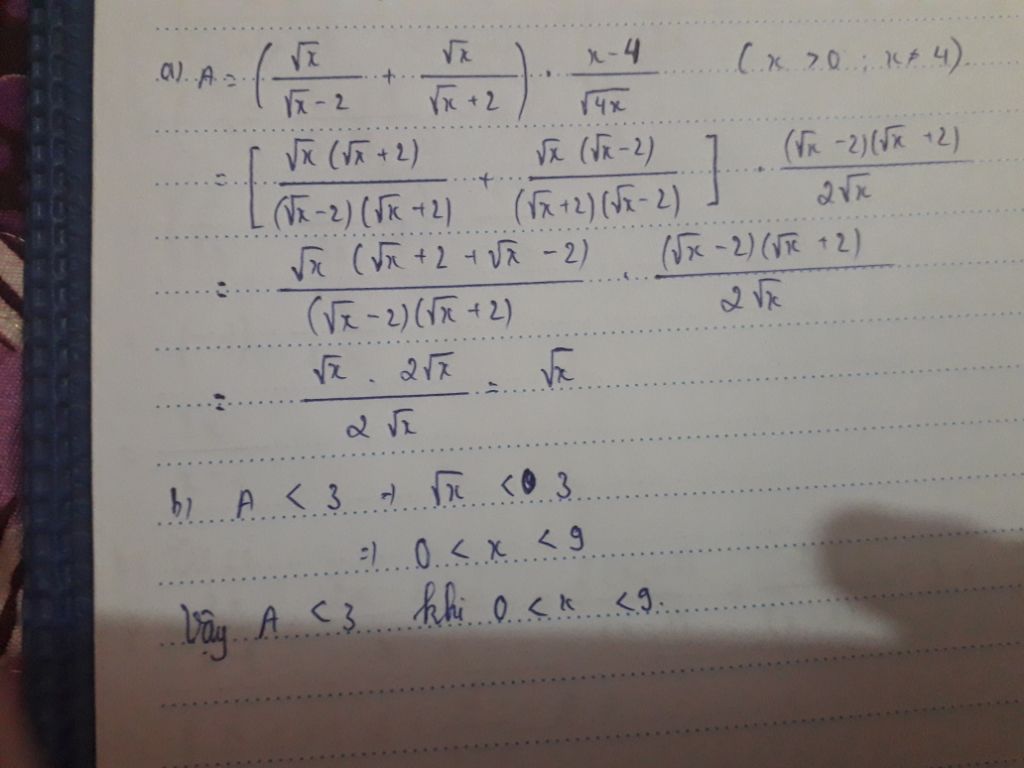 a) A = ( √x / (√x - 2) + √x / (√x + 2) ) · (x - 4) / √4x (x > 0 ; x ≠ 4).
= [ √x (√x + 2) / (√x - 2)(√x + 2) + √x (√x - 2) / (√x + 2)(√x - 2) ] · (√x - 2)(√x + 2) / 2√x
= √x (√x + 2 + √x - 2) / (√x - 2)(√x + 2) · (√x - 2)(√x + 2) / 2√x
= √x . 2√x / 2√x = √x
b) A < 3 => √x < 3
=> 0 < x < 9
Vậy A < 3 khi 0 < x < 9.